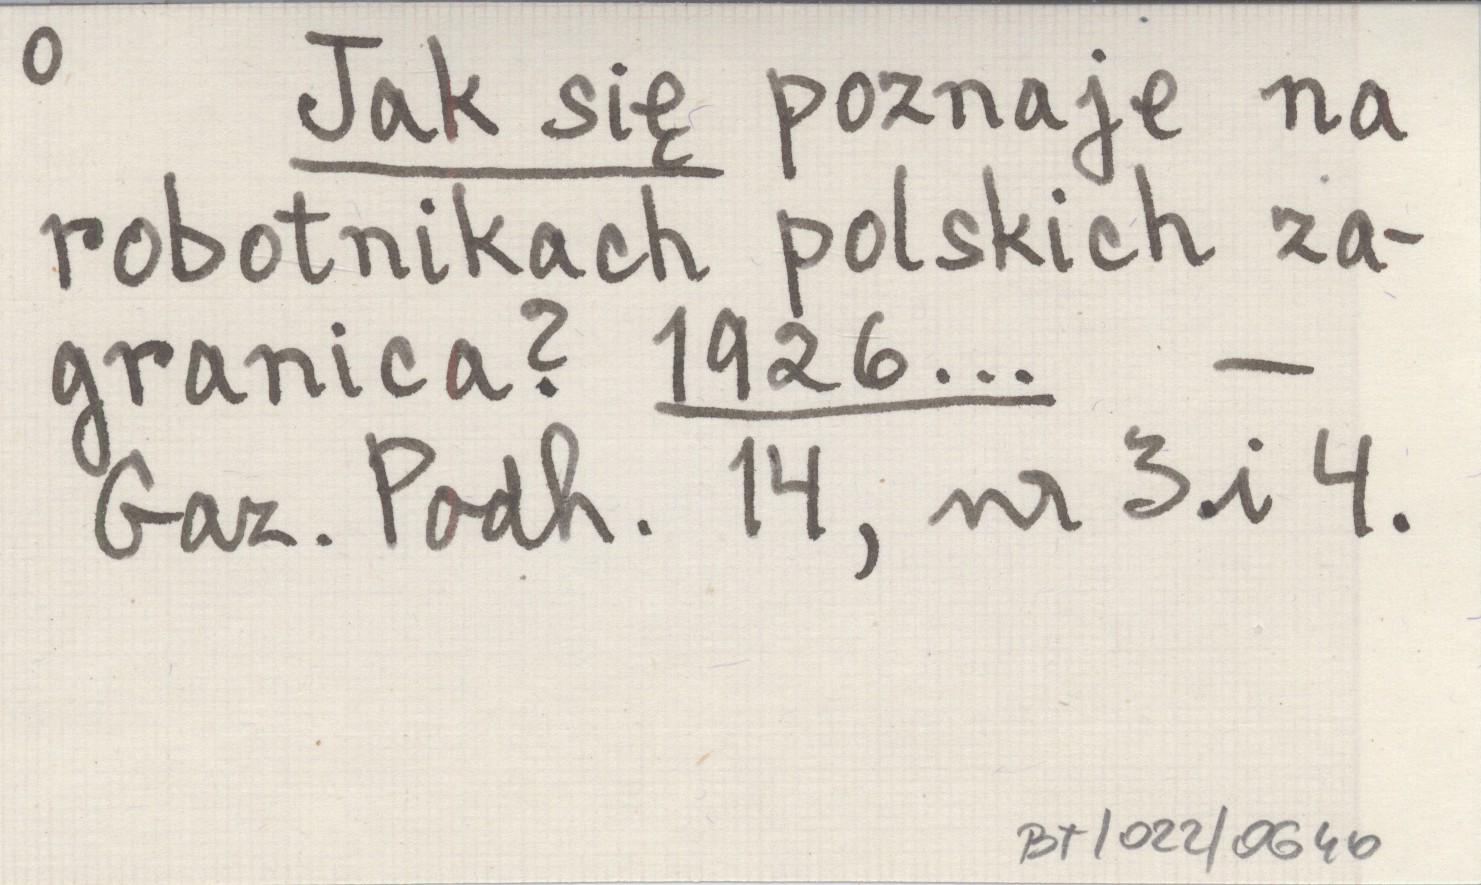 0
Jak się poznaje na
robotnikach polskich za-
granica? 1926... —
Gaz. Podh. 14, nr 3 i 4.
BT/022/0640